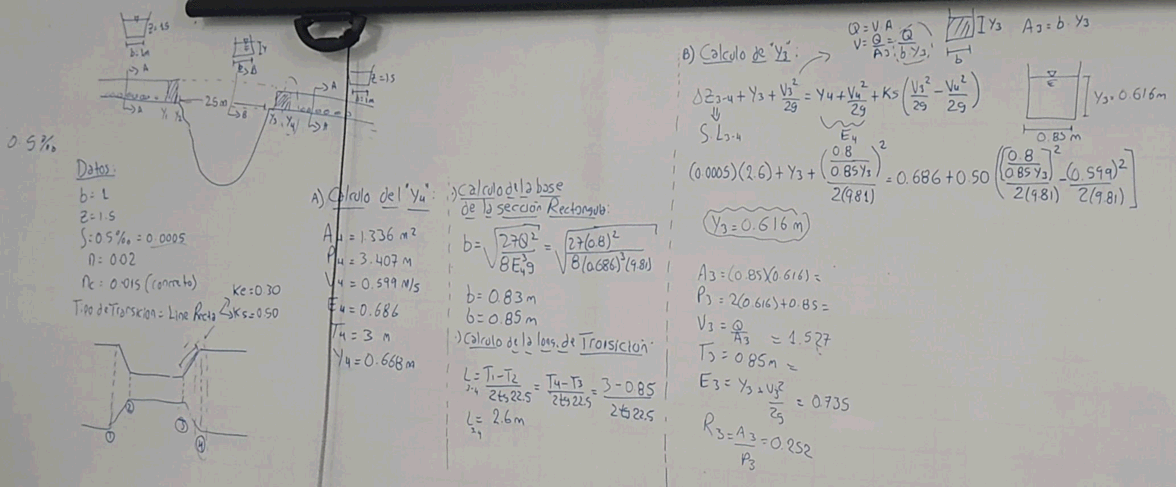 Z=1.5
b=1m
Y
B
Z=1.5
b=1m
A
A
25m
B
A
A
Y1 Y2
Y3 Y4
0.5‰
Datos:
b=1
Z=1.5
S=0.5‰=0.0005
n=0.02
nc=0.015 (concreto)
Ke=0.30
Tipo de Transicion = Linea Recta
Ks=0.50
1
2
3
4
A) Calculo del "Y4":
A4=1.336 m²
P4=3.407 m
V4=0.599 M/s
E4=0.686
T4=3 m
Y4=0.668 m
:) Calculo de la base
de la sección Rectangular:
b=√(27Q²/8E4³g) = √(27(0.8)²/8(0.686)³(9.81))
b=0.83m
b=0.85m
:) Calculo de la Long. de Transicion:
L3-4 = T1-T2/2tg22.5 = T4-T3/2tg22.5 = 3-0.85/2tg22.5
L3-4 = 2.6m
B) Calculo de "Y3":
Q=V.A
V=Q/A3=Q/b.Y3
Y3
b
A3=b.Y3
ΔZ3-4+Y3+V3²/2g=Y4+V4²/2g+Ks(V3²/2g-V4²/2g)
S L3-4
E4
Y3=0.616m
0.85m
(0.0005)(2.6)+Y3+(0.8/0.85Y3)²/2(9.81)=0.686+0.50[(0.8/0.85Y3)²/2(9.81)-(0.599)²/2(9.81)]
Y3=0.616m
A3=(0.85)(0.616)=
P3=2(0.616)+0.85=
V3=Q/A3=1.527
T3=0.85m=
E3=Y3+V3²/2g=0.735
R3=A3/P3=0.252